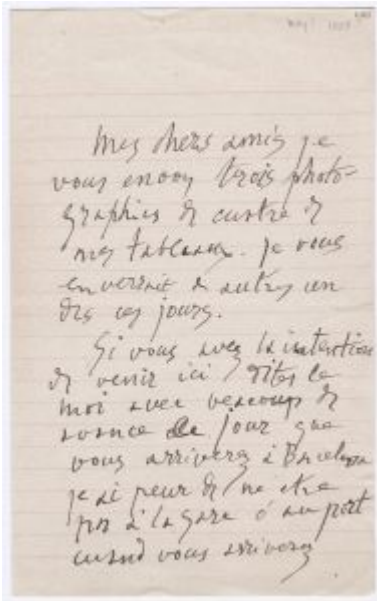 Mes chers amis je
vous envoy trois photo-
graphies de cuatre de
mes tableaux. Je vous
enverrait de autres un
des ces jours.
Si vous avez la intention
de venir ici dites le
moi avec beacoup de
avance le jour que
vous arriverez à Barcelona
je ai peur de ne etre
pas à la gare ó au port
cuand vous arriverez